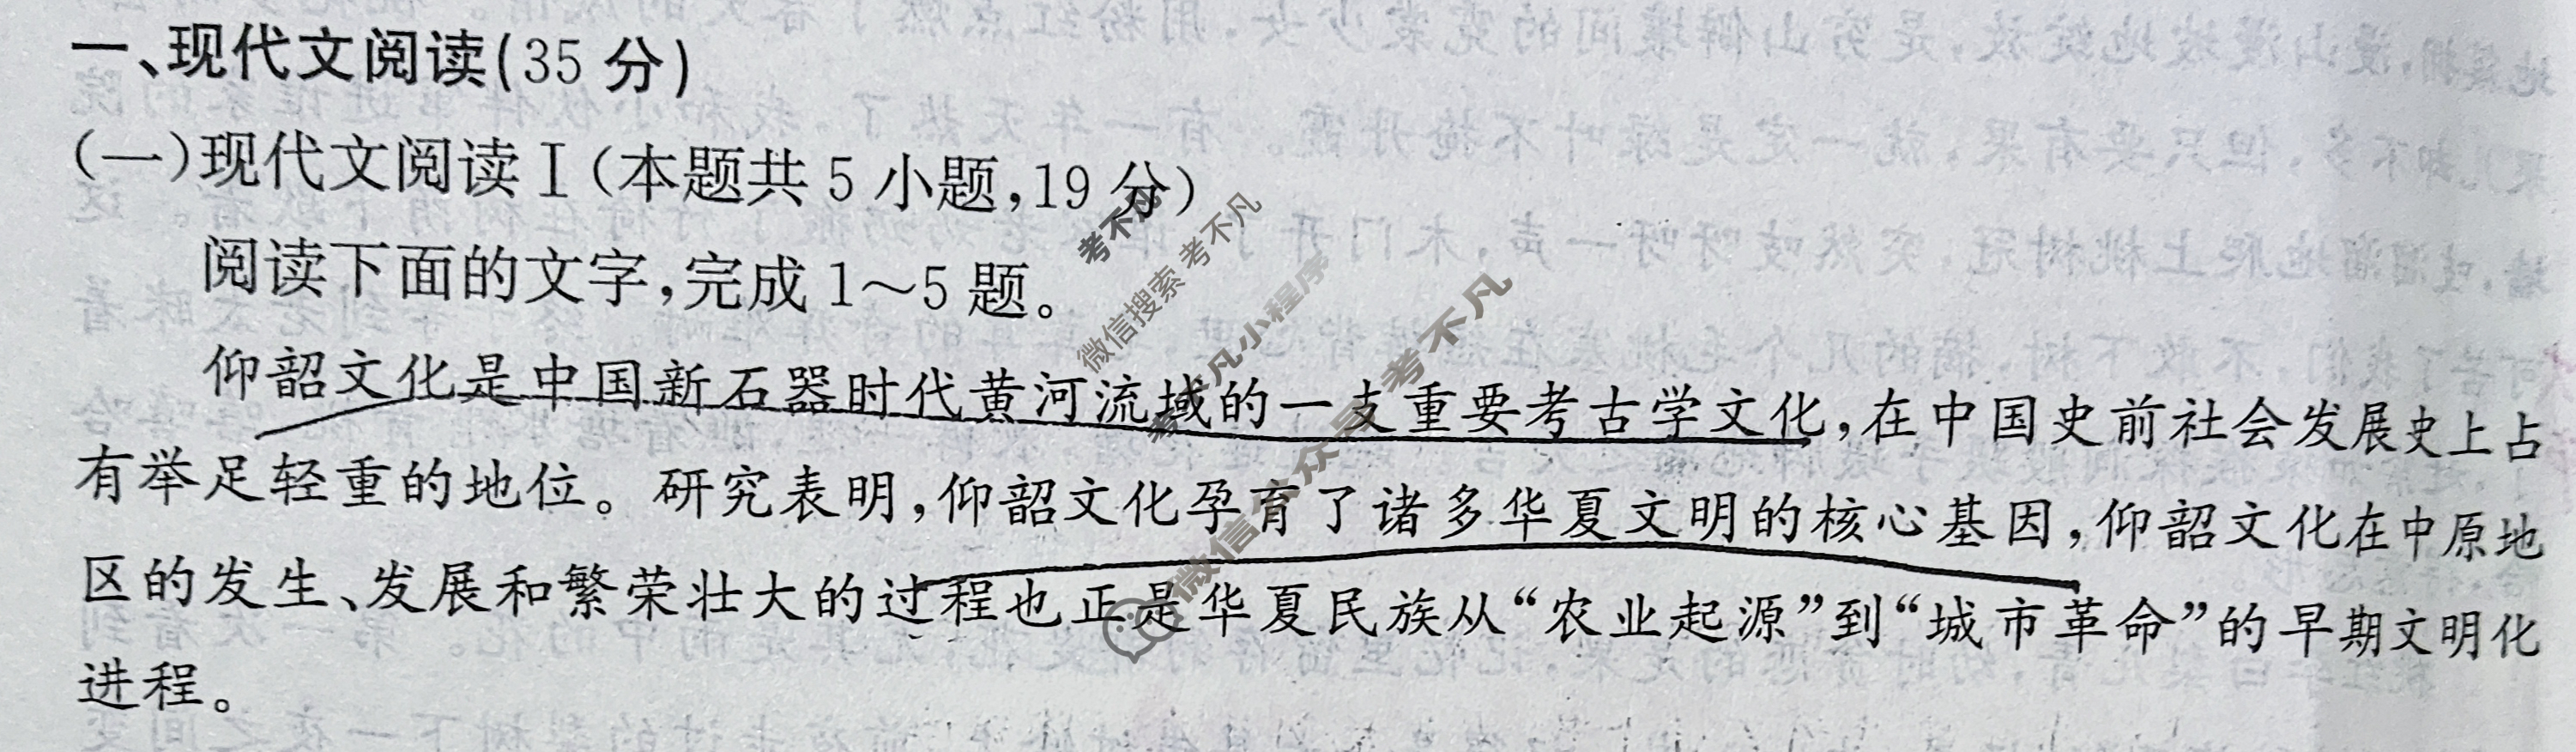 一、现代文阅读(35 分)
(一)现代文阅读Ⅰ(本题共 5 小题,19 分)
阅读下面的文字,完成 1～5 题。
仰韶文化是中国新石器时代黄河流域的一支重要考古学文化,在中国史前社会发展史上占
有举足轻重的地位。研究表明,仰韶文化孕育了诸多华夏文明的核心基因,仰韶文化在中原地
区的发生、发展和繁荣壮大的过程也正是华夏民族从“农业起源”到“城市革命”的早期文明化
进程。
考不凡
微信搜索 考不凡
考不凡小程序
微信公众号 考不凡